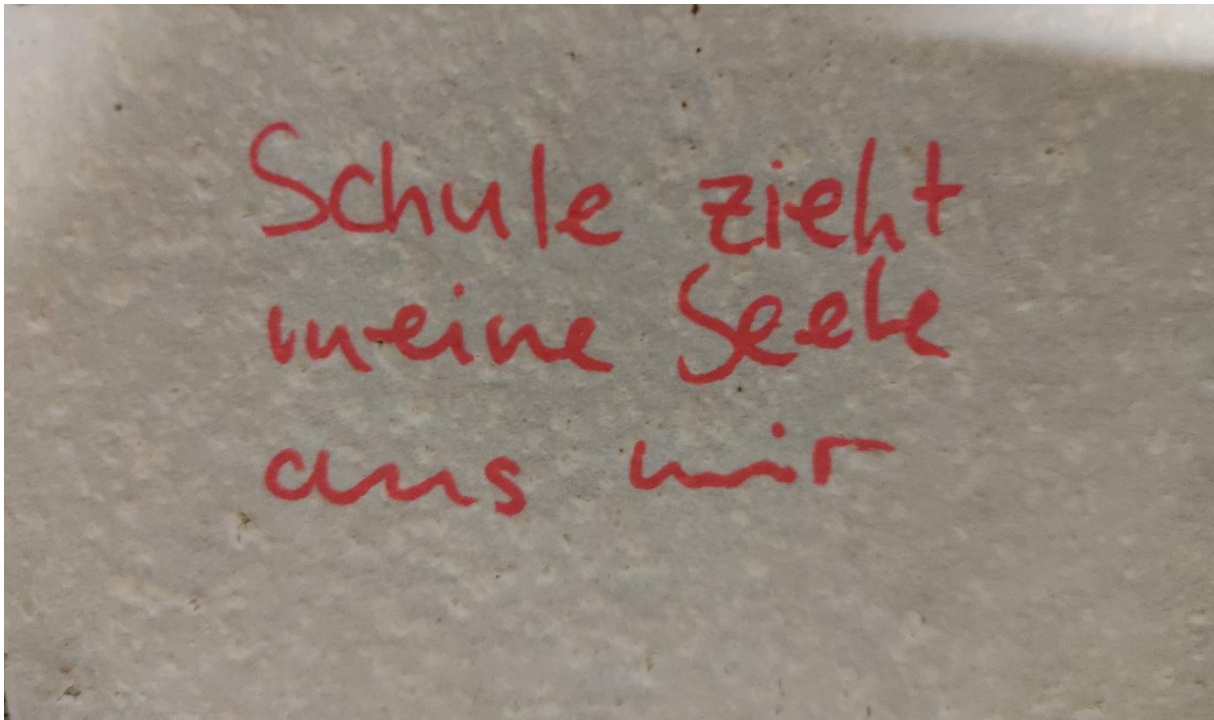 Schule zieht
meine Seele
aus mir